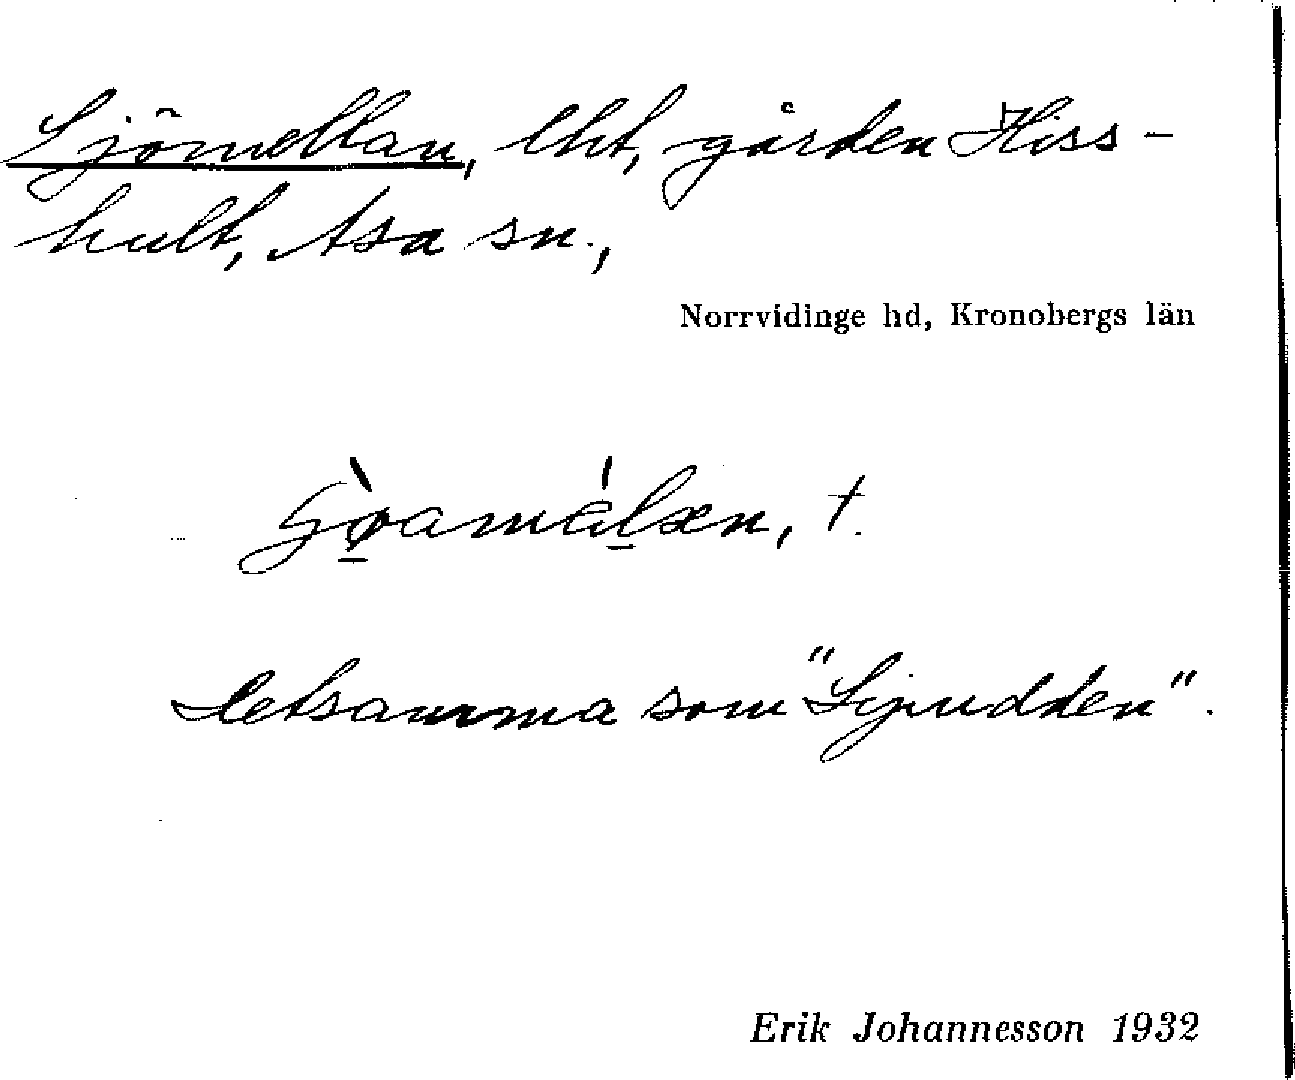 Sjömellan, lht, gården Hiss-
hult, Asa sn.,
Norrvidinge hd, Kronobergs län
detsamma som "Sjnudden".
Erik Johannesson 1932